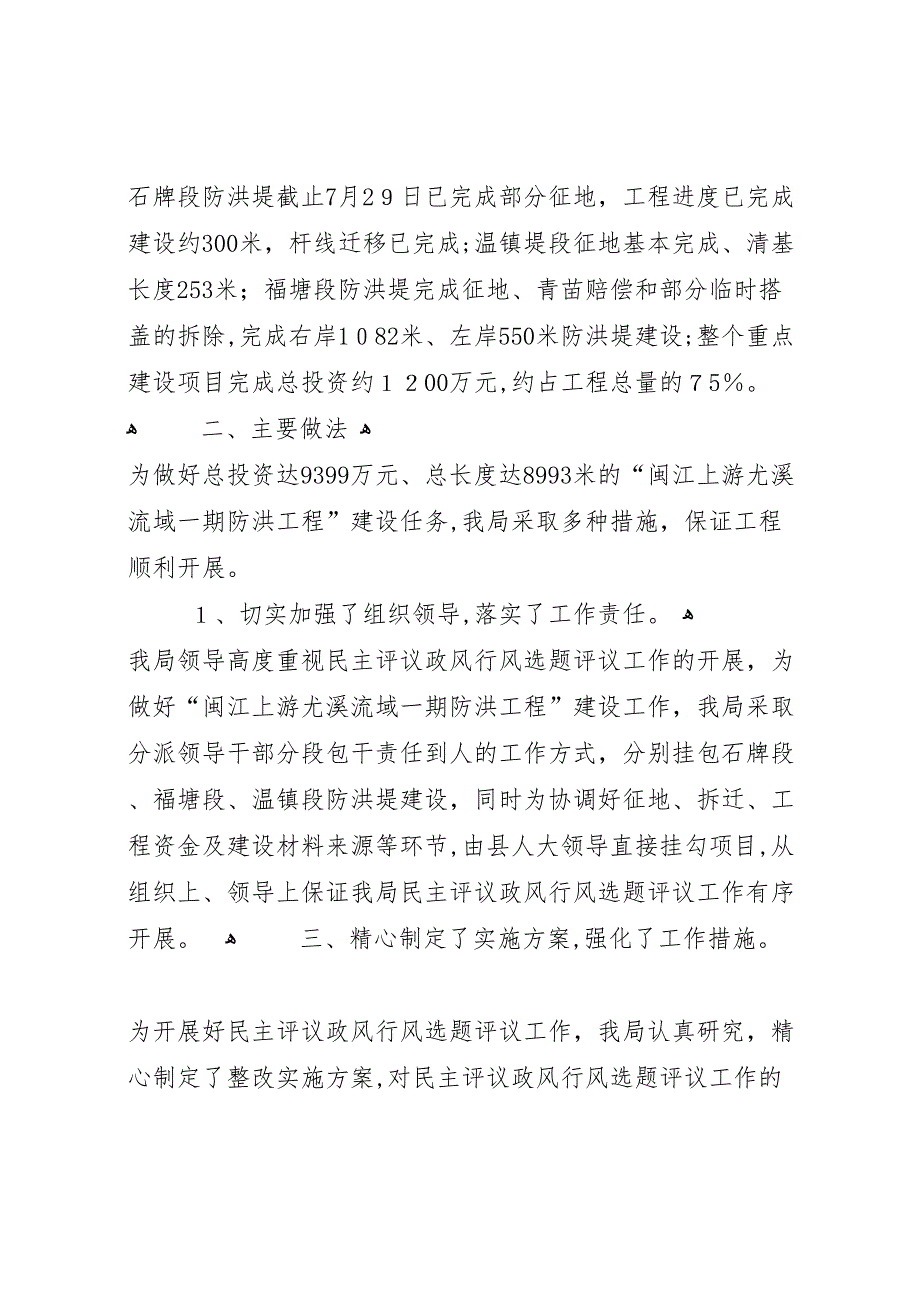 石牌段防洪堤截止7月29日已完成部分征地，工程进度已完成
建设约300米，杆线迁移已完成;温镇堤段征地基本完成、清基
长度253米；福塘段防洪堤完成征地、青苗赔偿和部分临时搭
盖的拆除,完成右岸1082米、左岸550米防洪堤建设;整个重点
建设项目完成总投资约１２00万元,约占工程总量的７5%。
ﻫ 二、主要做法 ﻫ
为做好总投资达9399万元、总长度达8993米的“闽江上游尤溪
流域一期防洪工程”建设任务,我局采取多种措施，保证工程
顺利开展。
１、切实加强了组织领导,落实了工作责任。 ﻫ
我局领导高度重视民主评议政风行风选题评议工作的开展，为
做好“闽江上游尤溪流域一期防洪工程”建设工作，我局采取
分派领导干部分段包干责任到人的工作方式，分别挂包石牌段
、福塘段、温镇段防洪堤建设，同时为协调好征地、拆迁、工
程资金及建设材料来源等环节,由县人大领导直接挂勾项目,从
组织上、领导上保证我局民主评议政风行风选题评议工作有序
开展。 ﻫ 三、精心制定了实施方案,强化了工作措施。
为开展好民主评议政风行风选题评议工作，我局认真研究，精
心制定了整改实施方案,对民主评议政风行风选题评议工作的